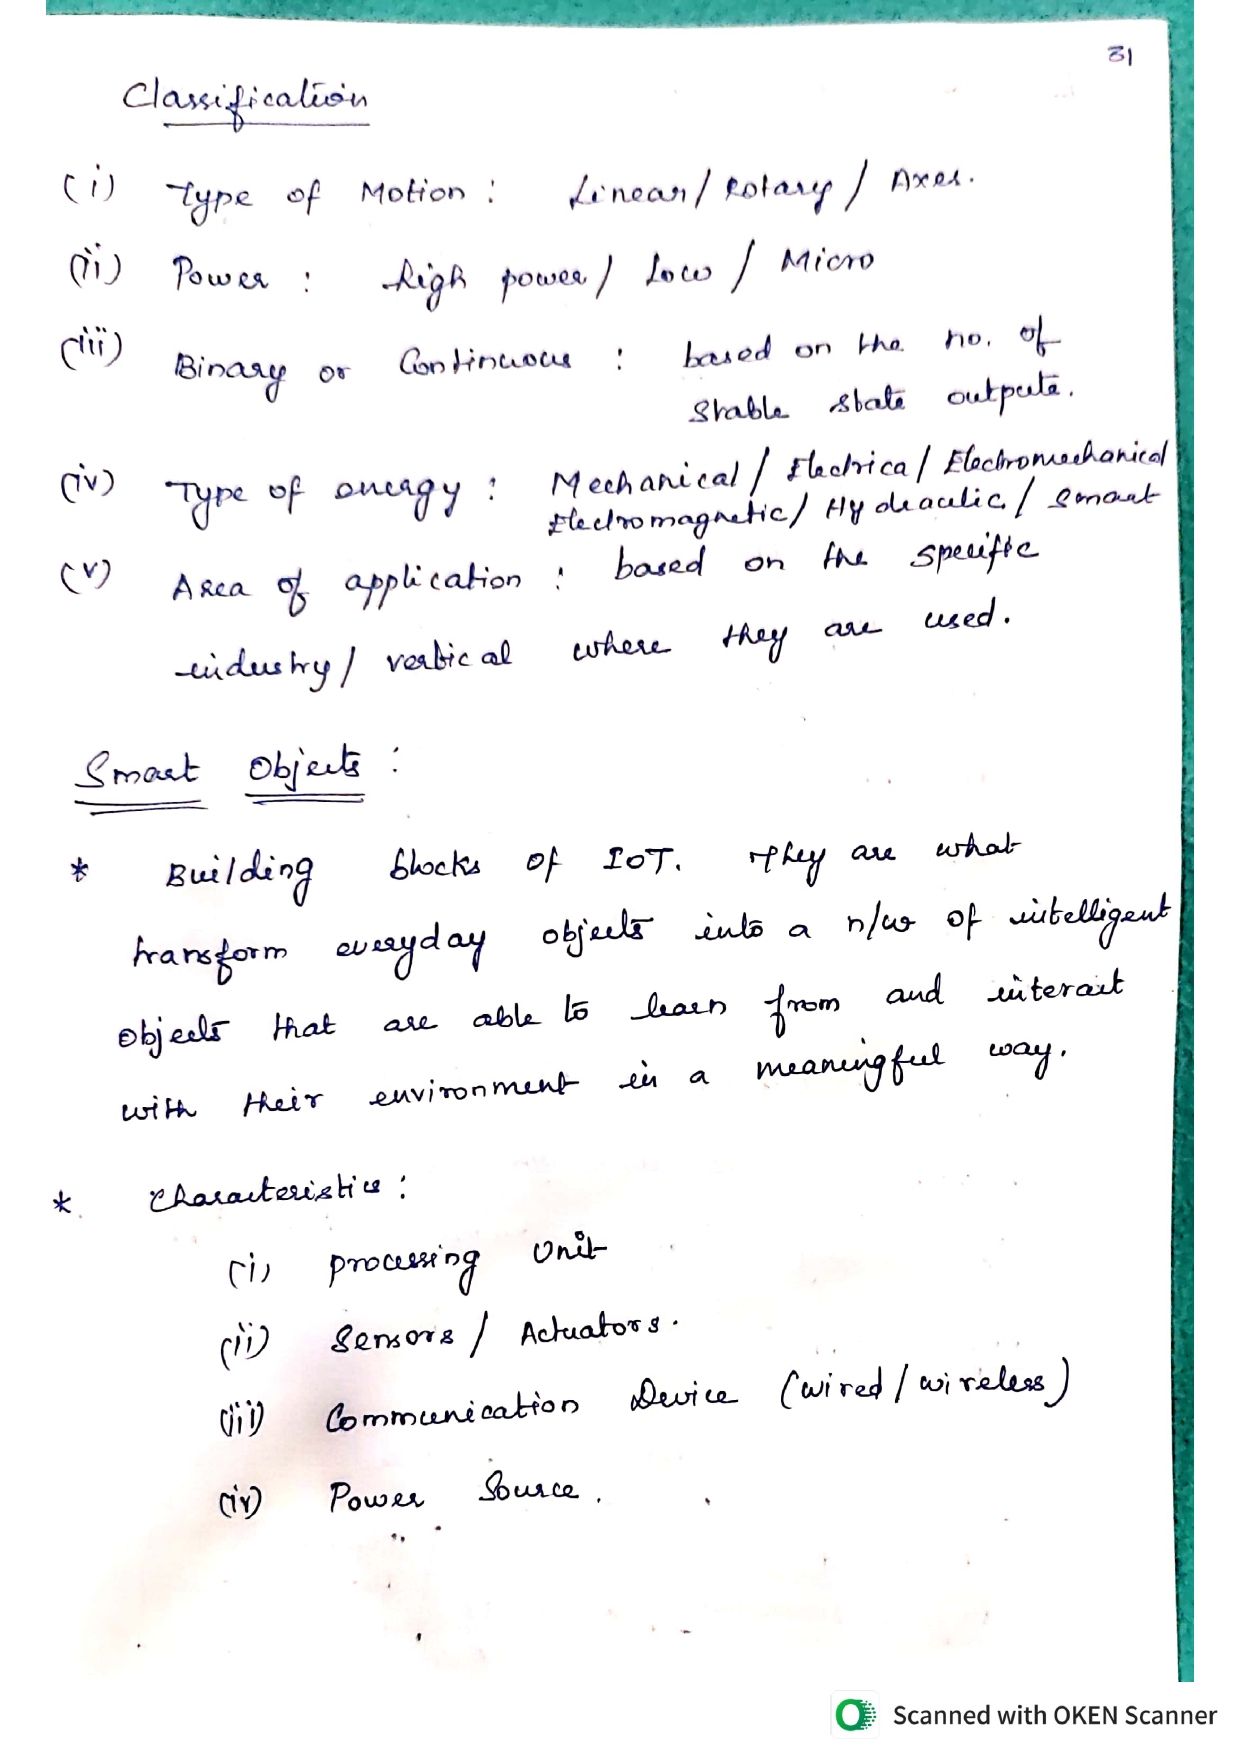 31
Classification
(i) Type of Motion : Linear / Rotary / Axes.
(ii) Power : High power / Low / Micro
(iii) Binary or Continuous : based on the no. of
stable state outputs.
(iv) Type of energy : Mechanical / Electrical / Electromechanical
Electromagnetic / Hydraulic / Smart
(v) Area of application : based on the specific
industry / vertical where they are used.
Smart Objects :
* Building blocks of IoT. They are what
transform everyday objects into a n/w of intelligent
objects that are able to learn from and interact
with their environment in a meaningful way.
* Characteristics :
(i) processing Unit
(ii) Sensors / Actuators.
(iii) Communication Device (wired / wireless)
(iv) Power Source.
Scanned with OKEN Scanner